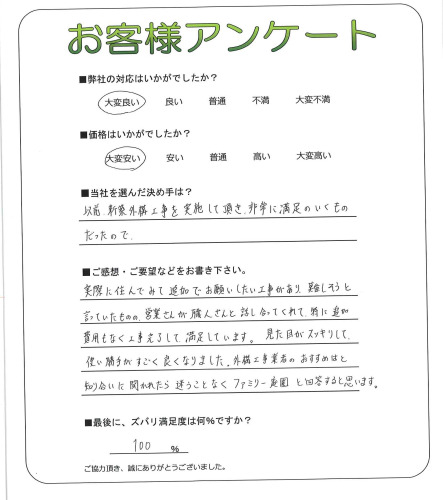 お客様アンケート
■弊社の対応はいかがでしたか?
大変良い 良い 普通 不満 大変不満
■価格はいかがでしたか?
大変安い 安い 普通 高い 大変高い
■当社を選んだ決め手は?
以前 新築外構工事を実施して頂き、非常に満足のいくもの
だったので、
■ご感想・ご要望などをお書き下さい。
実際に住んでみて追加でお願いしたい工事があり、難しそうと
言っていたものの、営業さんが職人さんと話し合ってくれて、特に追加
費用もなく工事えるして、満足しています。見た目がスッキリして、
使い勝手がすごく良くなりました。外構工事業者のおすすめはと
知り合いに聞かれたら迷うことなくファミリー庭園と回答すると思います。
■最後に、ズバリ満足度は何%ですか?
100 %
ご協力頂き、誠にありがとうございました。